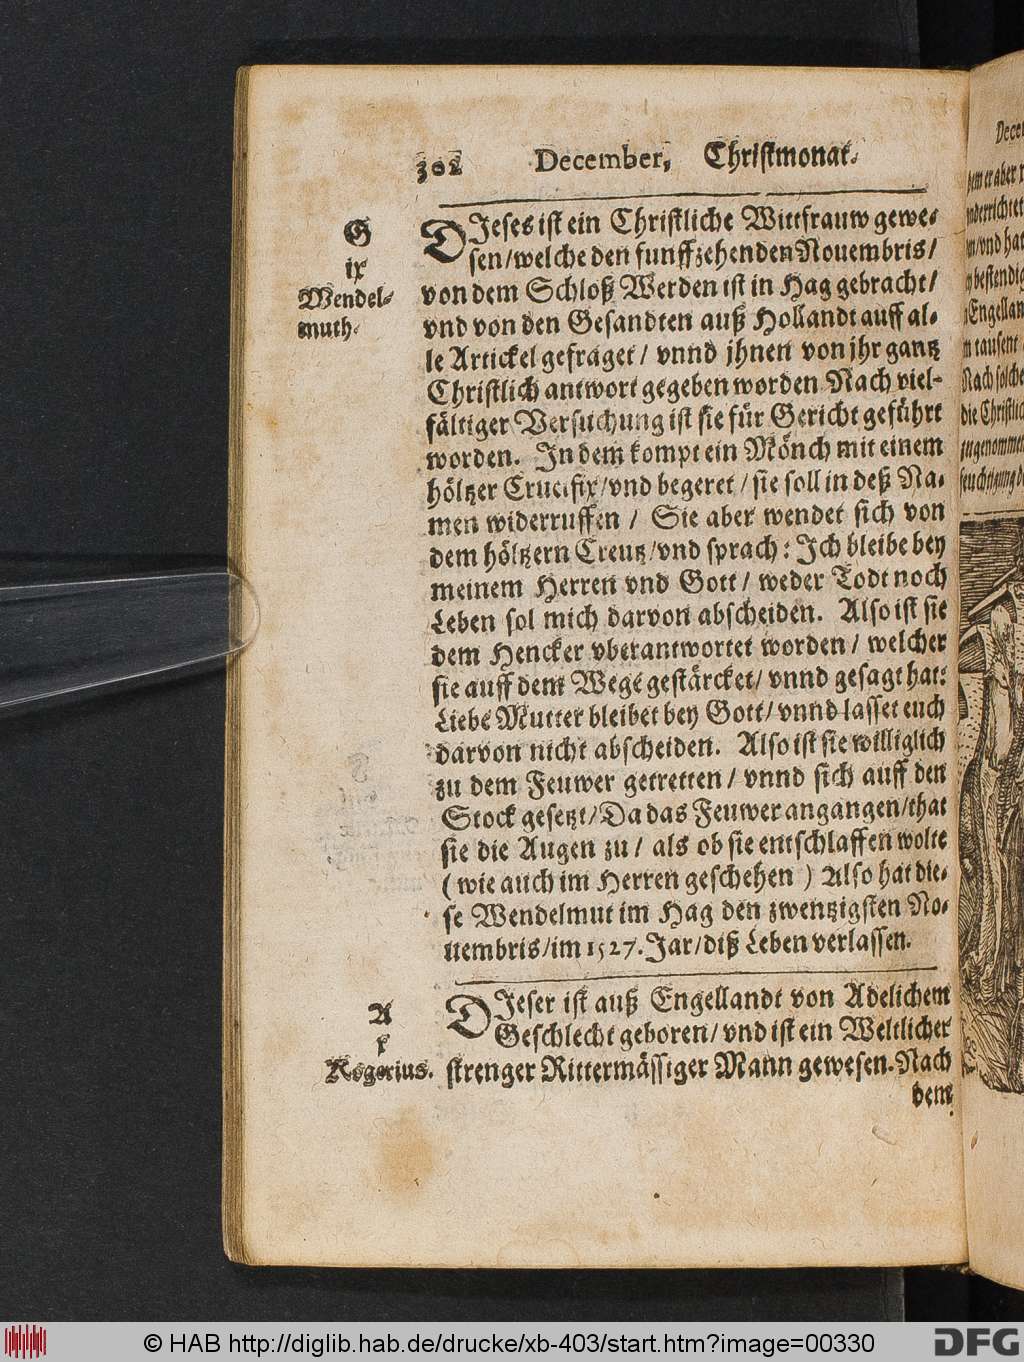 302 December, Christmonat.
G
ix
Wendel-
muth.
DIeses ist ein Christliche Wittfrauw gewe-
sen/welche den funffzehenden Nouembris/
von dem Schloß Werden ist in Hag gebracht/
vnd von den Gesandten auß Hollandt auff al-
le Artickel gefraget/ vnnd jhnen von jhr gantz
Christlich antwort gegeben worden Nach viel-
fältiger Versuchung ist sie für Gericht geführt
worden. In dem kompt ein Mönch mit einem
höltzer Crucifix/vnd begeret/sie soll in deß Na-
men widerruffen / Sie aber wendet sich von
dem höltzern Creutz/vnd sprach: Ich bleibe bey
meinem Herren vnd Gott/ weder Todt noch
Leben sol mich darvon abscheiden. Also ist sie
dem Hencker vberantwortet worden/ welcher
sie auff dem Wege gestärcket/ vnnd gesagt hat:
Liebe Mutter bleibet bey Gott/ vnnd lasset euch
darvon nicht abscheiden. Also ist sie williglich
zu dem Feuwer getretten/ vnnd sich auff den
Stock gesetzt/Da das Feuwer angangen/that
sie die Augen zu/ als ob sie entschlaffen wolte
(wie auch im Herren geschehen ) Also hat die-
se Wendelmut im Hag den zwentzigsten No-
uembris/im 1527.Jar/diß Leben verlassen.
A
x
Rogerius.
DIeser ist auß Engellandt von Adelichem
Geschlecht geboren/ vnd ist ein Weltlicher
strenger Rittermässiger Mann gewesen. Nach
dem
Dece
dem er aber
vnd hat
bestendig
Engellan
tausent
Nach solche
die Christlic
zugenommen
© HAB http://diglib.hab.de/drucke/xb-403/start.htm?image=00330
DFG